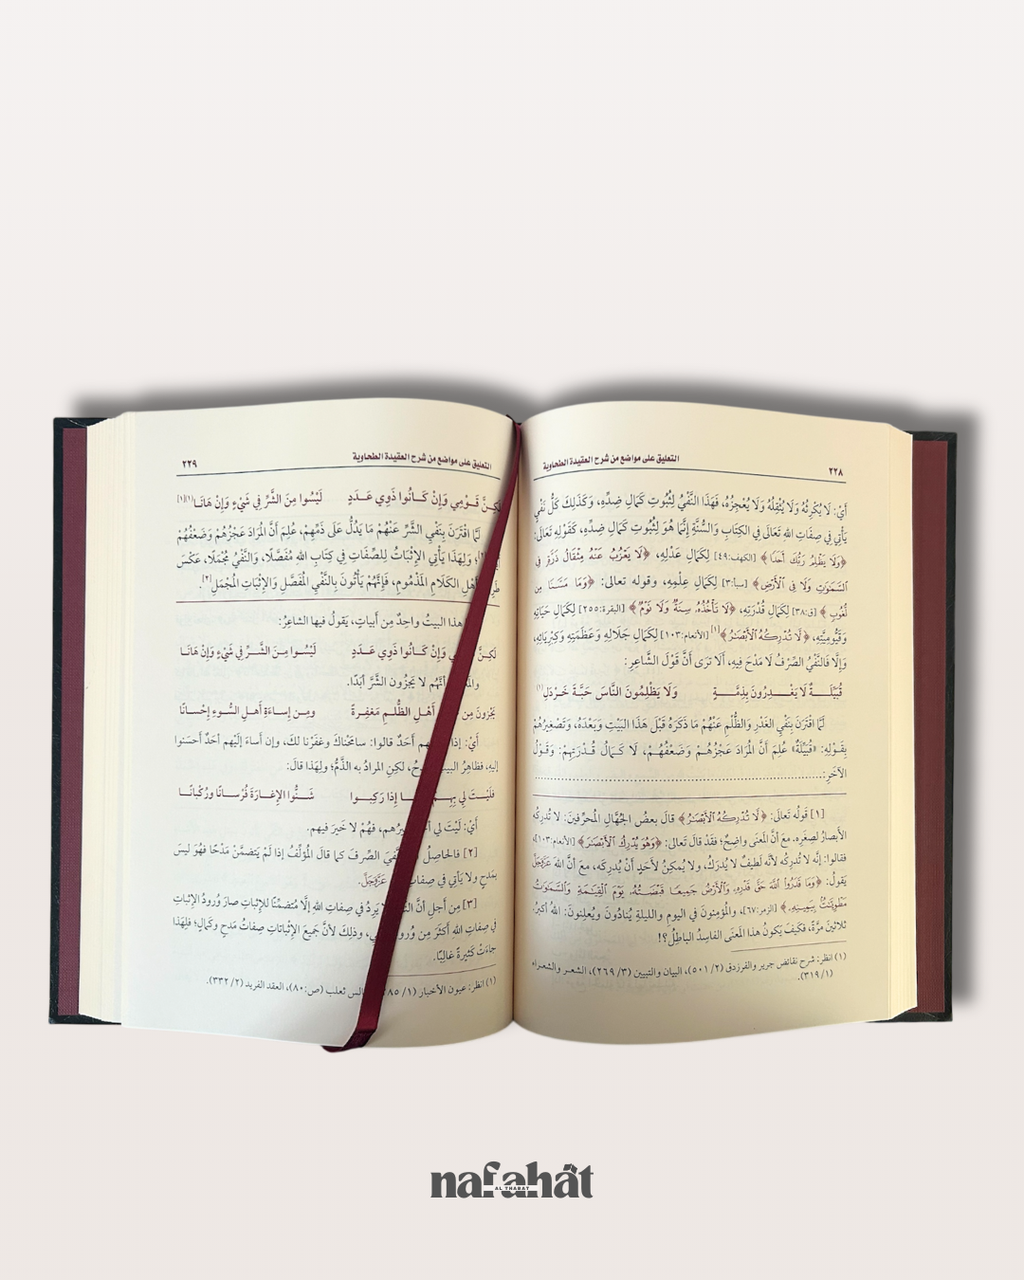 التعليق على مواضع من شرح العقيدة الطحاوية
٢٢٨
أَيْ: لَا يُكْرِثُهُ وَلَا يُثْقِلُهُ وَلَا يُعْجِزُهُ، فَهَذَا النَّفْيُ لِثُبُوتِ كَمَالِ ضِدِّهِ، وَكَذَلِكَ كُلُّ نَفْيٍ
يَأْتِي فِي صِفَاتِ اللهِ تَعَالَى فِي الكِتَابِ وَالسُّنَّةِ إِنَّمَا هُوَ لِثُبُوتِ كَمَالِ ضِدِّهِ، كَقَوْلِهِ تَعَالَى:
﴿وَلَا يَظْلِمُ رَبُّكَ أَحَدًا﴾ [الكهف:٤٩] لِكَمَالِ عَدْلِهِ، ﴿لَا يَعْزُبُ عَنْهُ مِثْقَالُ ذَرَّةٍ فِي
ٱلسَّمَٰوَٰتِ وَلَا فِي ٱلْأَرْضِ﴾ [سبأ:٣] لِكَمَالِ عِلْمِهِ، وقوله تعالى: ﴿وَمَا مَسَّنَا مِن
لُّغُوبٍ﴾ [ق:٣٨] لِكَمَالِ قُدْرَتِهِ، ﴿لَا تَأْخُذُهُۥ سِنَةٌ وَلَا نَوْمٌ﴾ [البقرة:٢٥٥] لِكَمَالِ حَيَاتِهِ
وَقَيُّومِيَّتِهِ، ﴿لَّا تُدْرِكُهُ ٱلْأَبْصَٰرُ﴾[١] [الأنعام:١٠٣] لِكَمَالِ جَلَالِهِ وَعَظَمَتِهِ وَكِبْرِيَائِهِ،
وَإِلَّا فَالنَّفْيُ الصِّرْفُ لَا مَدْحَ فِيهِ، أَلَا تَرَى أَنَّ قَوْلَ الشَّاعِرِ:
قُبَيِّلَةٌ لَا يَغْدِرُونَ بِذِمَّةٍ وَلَا يَظْلِمُونَ النَّاسَ حَبَّةَ خَرْدَلِ(١)
لَمَّا اقْتَرَنَ بِنَفْيِ الغَدْرِ وَالظُّلْمِ عَنْهُمْ مَا ذَكَرَهُ قَبْلَ هَذَا البَيْتِ وَبَعْدَهُ، وَتَصْغِيرُهُمْ
بِقَوْلِهِ: «قُبَيِّلَةٌ» عُلِمَ أَنَّ المُرَادَ عَجْزُهُمْ وَضَعْفُهُمْ، لَا كَمَالُ قُدْرَتِهِمْ: وَقَوْلُ
الآخَرِ:........................................
[١] قَولُه تَعالَى: ﴿لَّا تُدْرِكُهُ ٱلْأَبْصَٰرُ﴾ قالَ بعضُ الجُهَّالِ المُحرِّفينَ: لا تُدرِكُه
الأبصارُ لصِغَرِه. معَ أنَّ المَعنَى واضِحٌ؛ فقَدْ قالَ تَعالَى: ﴿وَهُوَ يُدْرِكُ ٱلْأَبْصَٰرَ﴾ [الأنعام:١٠٣]،
فقالوا: إنَّه لا تُدرِكُه لأنَّه لَطيفٌ لا يُدرَكُ، ولا يُمكِنُ لأَحَدٍ أنْ يُدرِكَه، معَ أنَّ اللهَ عَزَّوَجَلَّ
يَقولُ: ﴿وَمَا قَدَرُوا۟ ٱللَّهَ حَقَّ قَدْرِهِۦ وَٱلْأَرْضُ جَمِيعًا قَبْضَتُهُۥ يَوْمَ ٱلْقِيَٰمَةِ وَٱلسَّمَٰوَٰتُ
مَطْوِيَّٰتٌۢ بِيَمِينِهِۦ﴾ [الزمر:٦٧]، والمُؤمِنونَ في اليومِ والليلةِ يُنادُونَ ويُعلِنونَ: اللهُ أكبرُ.
ثلاثينَ مرَّةً، فكَيفَ يَكونُ هذا المَعنَى الفاسِدُ الباطِلُ؟!
(١) انظر: شرح نقائض جرير والفرزدق (٢/ ٥٠١)، البيان والتبيين (٣/ ٢٦٩)، الشعر والشعراء
(١/ ٣١٩).
التعليق على مواضع من شرح العقيدة الطحاوية
٢٢٩
لَكِنَّ قَوْمِي وَإِنْ كَانُوا ذَوِي عَدَدٍ لَيْسُوا مِنَ الشَّرِّ فِي شَيْءٍ وَإِنْ هَانَا(١)[١]
لَمَّا اقْتَرَنَ بِنَفْيِ الشَّرِّ عَنْهُمْ مَا يَدُلُّ عَلَى ذَمِّهِمْ، عُلِمَ أَنَّ المُرَادَ عَجْزُهُمْ وَضَعْفُهُمْ
وَلِهَذَا يَأْتِي الإِثْبَاتُ لِلصِّفَاتِ فِي كِتَابِ اللهِ مُفَصَّلًا، وَالنَّفْيُ مُجْمَلًا، عَكْسَ
أَهْلِ الكَلَامِ المَذْمُومِ، فَإِنَّهُمْ يَأْتُونَ بِالنَّفْيِ المُفَصَّلِ وَالإِثْبَاتِ المُجْمَلِ[٣].
هذا البيتُ واحِدٌ مِن أَبياتٍ، يَقولُ فيها الشاعِرُ:
لَكِنَّ وَإِنْ كَانُوا ذَوِي عَدَدٍ لَيْسُوا مِنَ الشَّرِّ فِي شَيْءٍ وَإِنْ هَانَا
أنَّهُم لا يَجزُون الشَّرَّ أبَدًا.
يَجْزُونَ مِن أَهْلِ الظُّلْمِ مَغْفِرةً ومِن إِساءَةِ أَهلِ السُّوءِ إِحْسانًا
أَيْ: إذا أَحَدٌ قالوا: سامَحْناكَ وغفَرْنا لكَ، وإن أَساءَ إلَيْهم أحَدٌ أَحسَنوا
إليه، فظاهِرُ لكِنِ المرادُ به الذَّمُّ؛ ولِهَذا قالَ:
فلَيْتَ لِي بِهِمُ إِذا رَكِبوا شَنُّوا الإِغارَةَ فُرْسانًا ورُكْبانًا
أَيْ: لَيْتَ لي فهُمْ لا خَيرَ فيهم.
[٢] فالحاصِلُ الصِّرفَ كما قالَ المُؤلِّفُ إذا لَمْ يَتَضمَّنْ مَدْحًا فهُوَ ليسَ
بمَدحٍ ولا يَأتي في صِفاتِ عَزَّوَجَلَّ.
[٣] مِن أَجلِ أنَّ يَرِدُ في صِفاتِ اللهِ إلَّا مُتضمِّنًا للإثباتِ صارَ وُرودُ الإثباتِ
في صِفاتِ اللهِ أَكثَرَ مِن وُرودِ وذلِكَ لأنَّ جَميعَ الإثْباتاتِ صِفاتُ مَدحٍ وكَمالٍ؛ فلِهَذا
جاءَتْ كَثيرةً غالِبًا.
(١) انظر: عيون الأخبار (١/ ثعلب (ص:٨٠)، العقد الفريد (٢/ ٣٣٢).
nafahât
AL THABAT